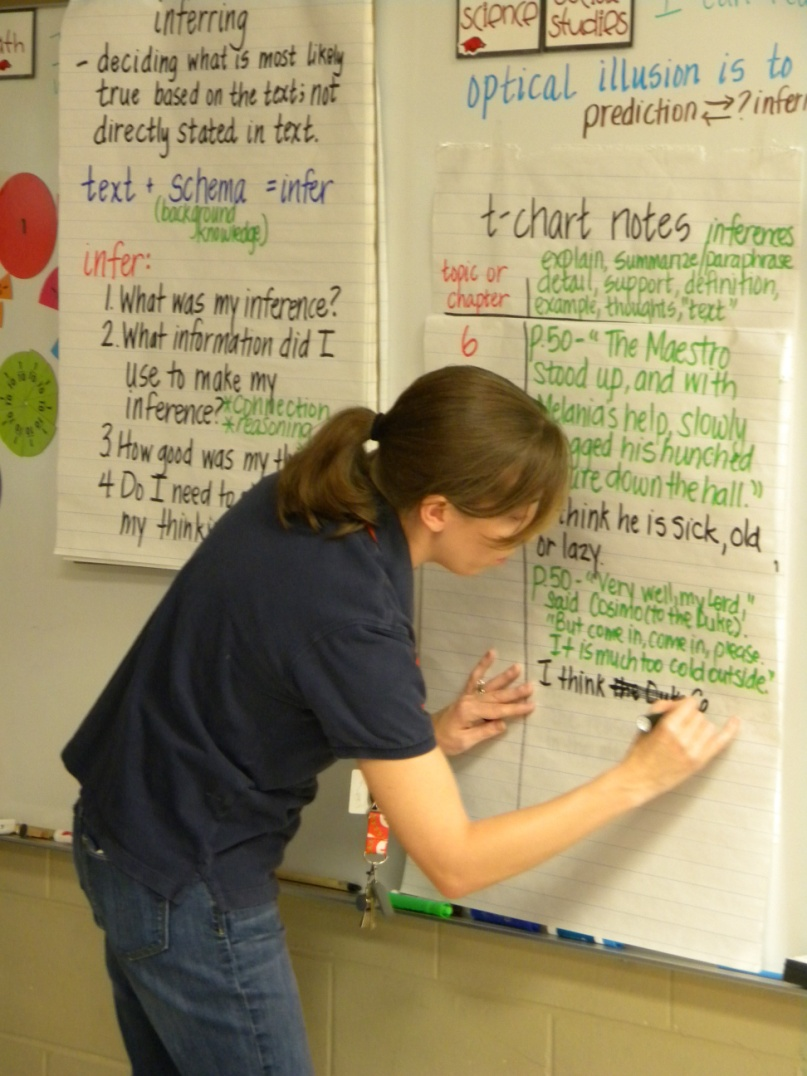 ath
inferring
- deciding what is most likely
true based on the text; not
directly stated in text.
text + schema = infer
(background
knowledge)
infer:
1. What was my inference?
2. What information did I
use to make my
inference? *connection
*reasoning
3 How good was my
4 Do I need to
my
science
social
studies
optical illusion is to
prediction ⇄ ? infer
t-chart notes inferences
topic or
chapter
explain, summarize/paraphrase
detail, support, definition,
example, thoughts, "text"
6
P.50-"The Maestro
stood up, and with
Melania's help, slowly
gged his hunched
ure down the hall."
think he is sick, old,
or lazy.
P.50-"Very well, my Lord,"
said Cosimo (to the Duke).
"But come in, come in, please.
It is much too cold outside."
I think the Duke Co